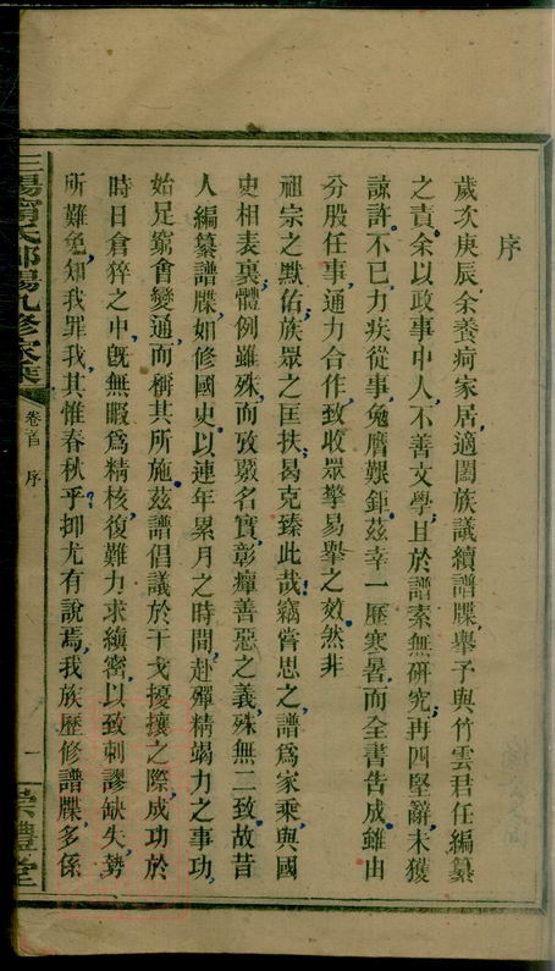 序
歲次庚辰余養疴家居適闔族議續譜牒舉予與竹雲君任編纂
之責余以政事中人不善文學且於譜素無硏究再四堅辭未獲
諒許不已力疾從事勉膺艱鉅茲幸一歷寒暑而全書告成雖由
分股任事通力合作致收眾擎易舉之效然非
祖宗之默佑族眾之匡扶曷克臻此哉竊嘗思之譜爲家乘與國
史相表裏體例雖殊而攷覈名實彰癉善惡之義殊無二致故昔
人編纂譜牒如修國史以連年累月之時間赴殫精竭力之事功
始足窮會變通而稱其所施茲譜倡議於干戈擾攘之際成功於
時日倉猝之中旣無暇爲精核復難力求縝密以致刺謬缺失勢
所難免知我罪我其惟春秋乎抑尤有說焉我族歷修譜牒多係
卷首 序 一